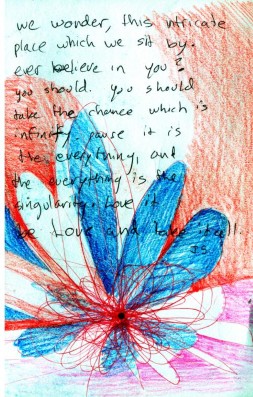 we wonder, this intricate
place which we sit by.
ever believe in you?
you should. you should
take the chance which is
infinity cause it is
the everything, and
the everything is the
singularity. Love it
be Love and take it all.
is.